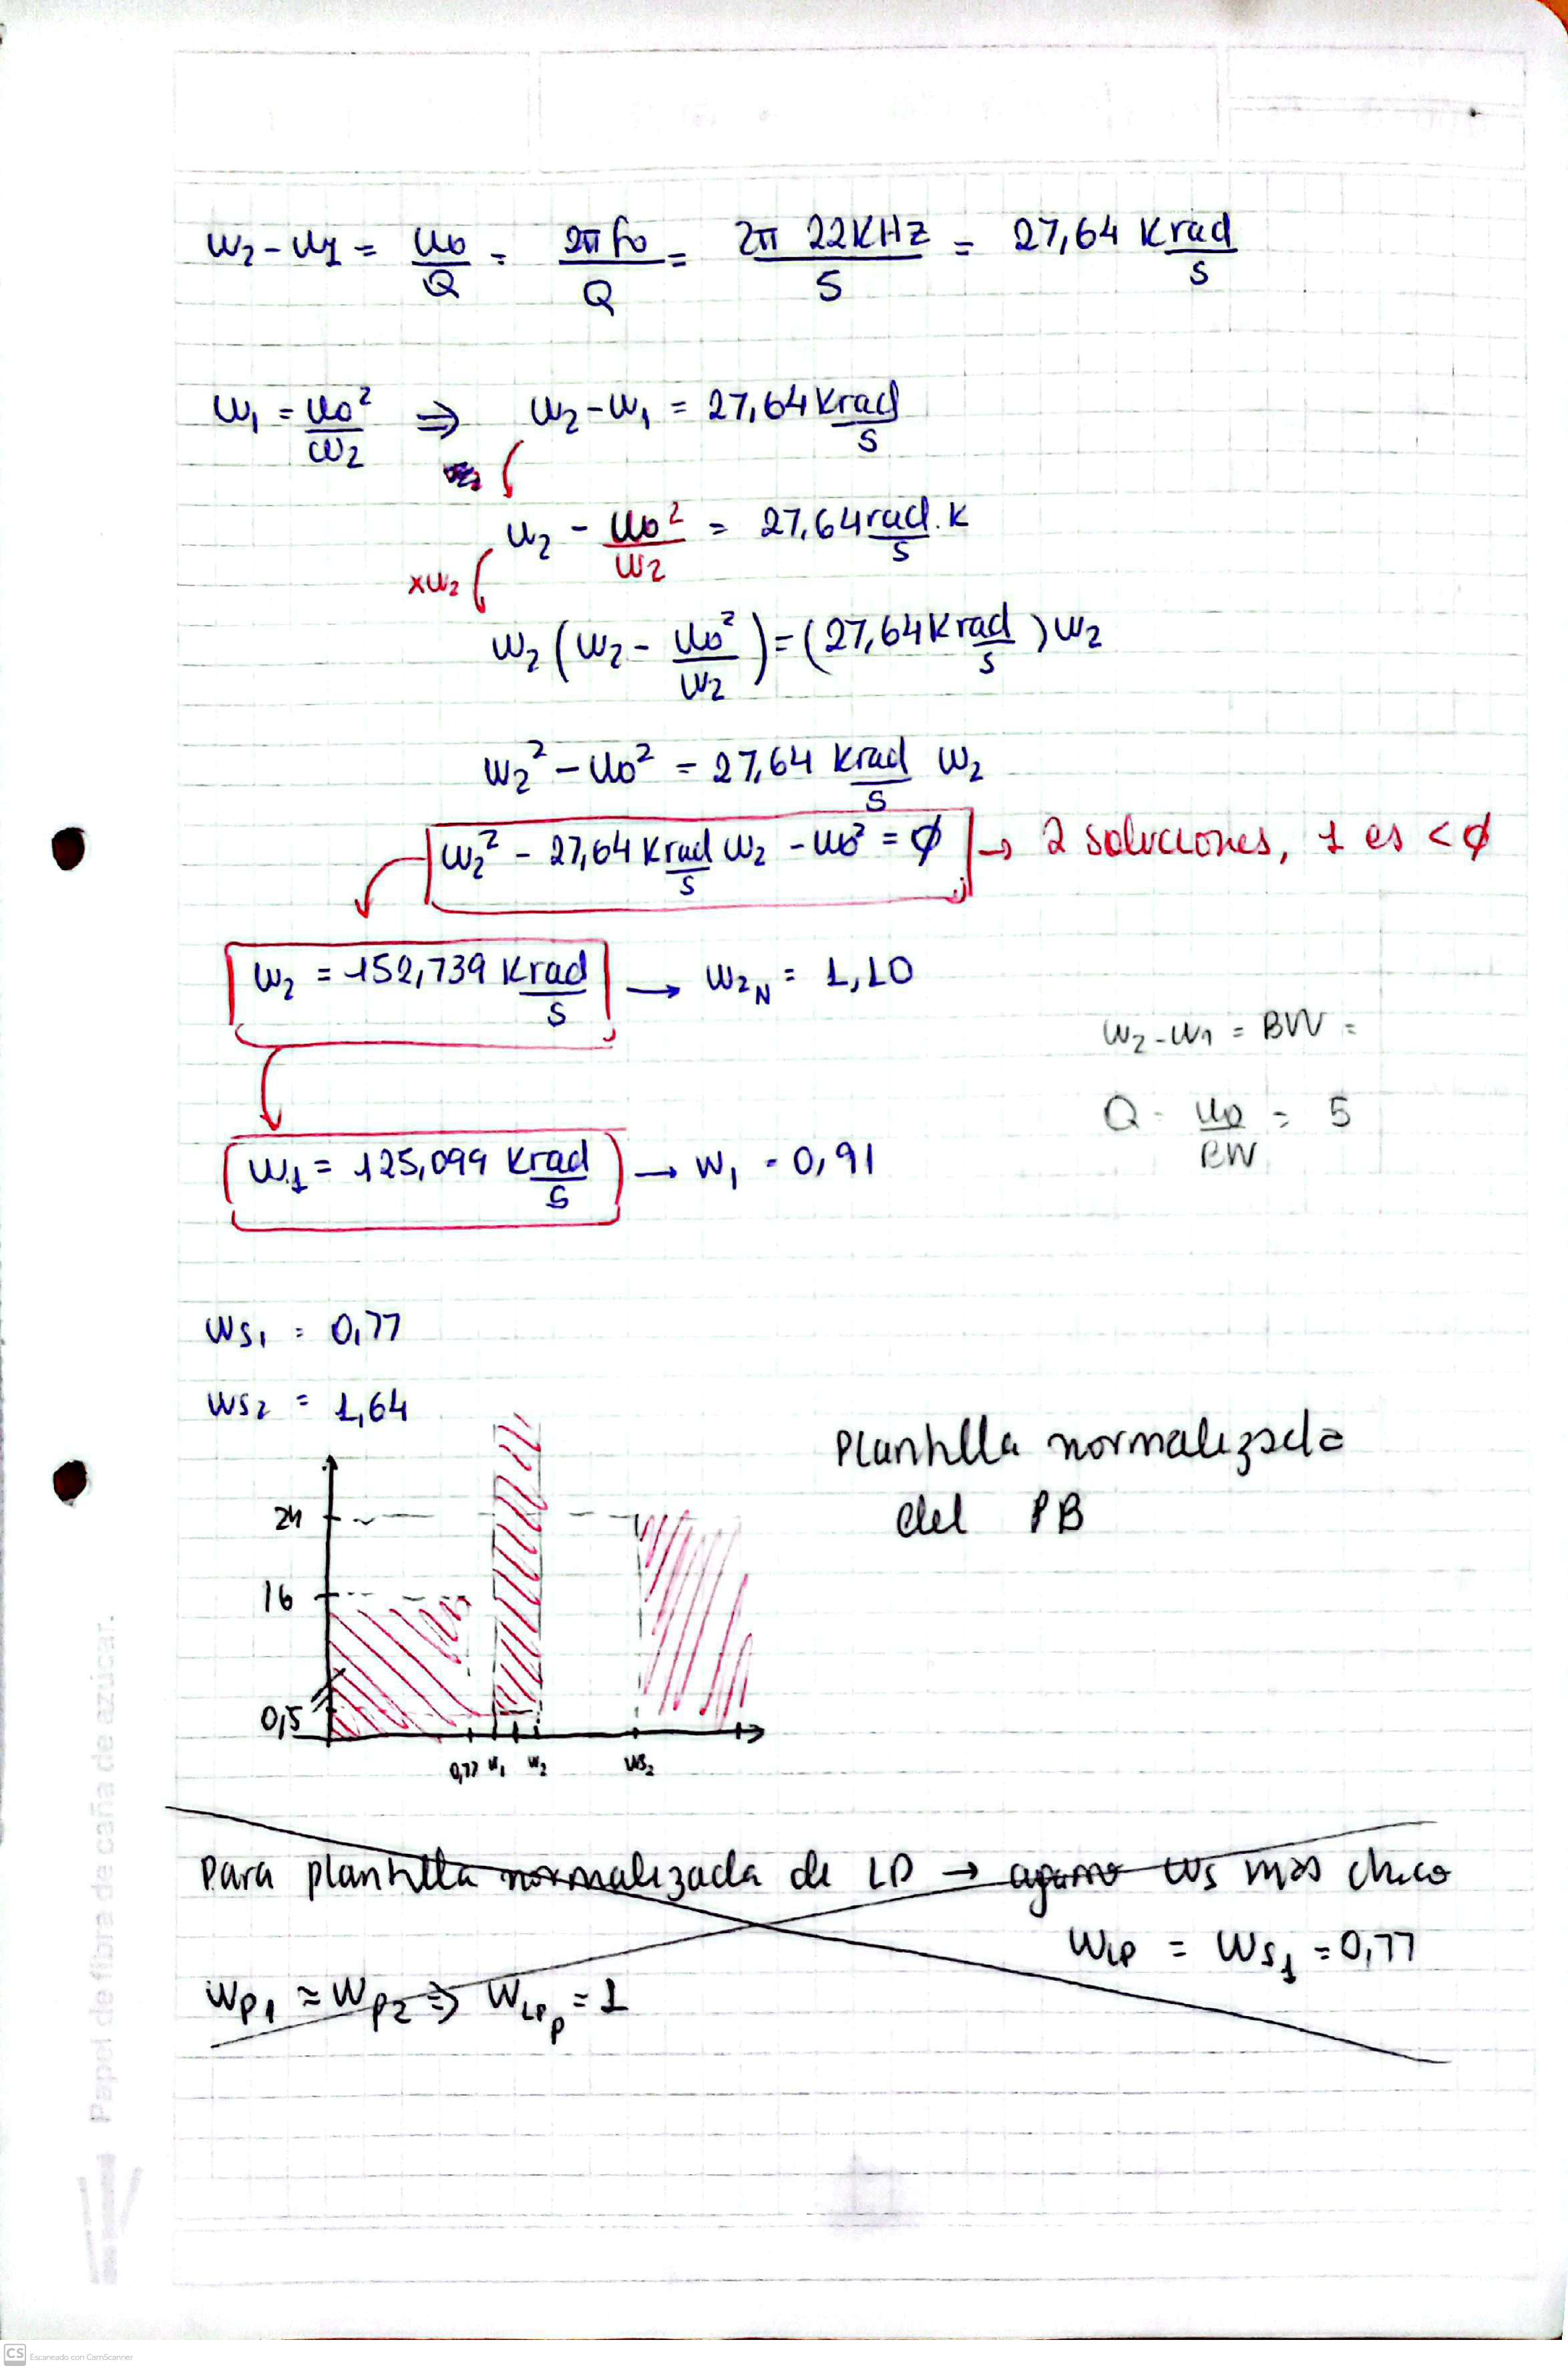 w₂ - w₁ = w₀/Q = 2πf₀/Q = 2π 22KHz/5 = 27,64 Krad/s
w₁ = w₀²/w₂ ⇒ w₂ - w₁ = 27,64 Krad/s
w₂ - w₀²/w₂ = 27,64 rad/s . K
xw₂
w₂ (w₂ - w₀²/w₂) = (27,64 Krad/s) w₂
w₂² - w₀² = 27,64 Krad/s w₂
w₂² - 27,64 Krad/s w₂ - w₀² = ∅ → 2 soluciones, 1 es < ∅
w₂ = 152,739 Krad/s → w₂N = 1,10
w₂ - w₁ = BW =
Q = w₀/BW = 5
w₁ = 125,099 Krad/s → w₁ = 0,91
ws₁ = 0,77
ws₂ = 1,64
Plantilla normalizada
del PB
24
16
0,5
0,77 w₁ w₂ ws₂
Para plantilla normalizada de LP → agarro ws más chico
WLP = Ws₁ = 0,77
Wp₁ ≈ Wp₂ ⇒ WLPp = 1
Papel de fibra de caña de azúcar.
CS Escaneado con CamScanner